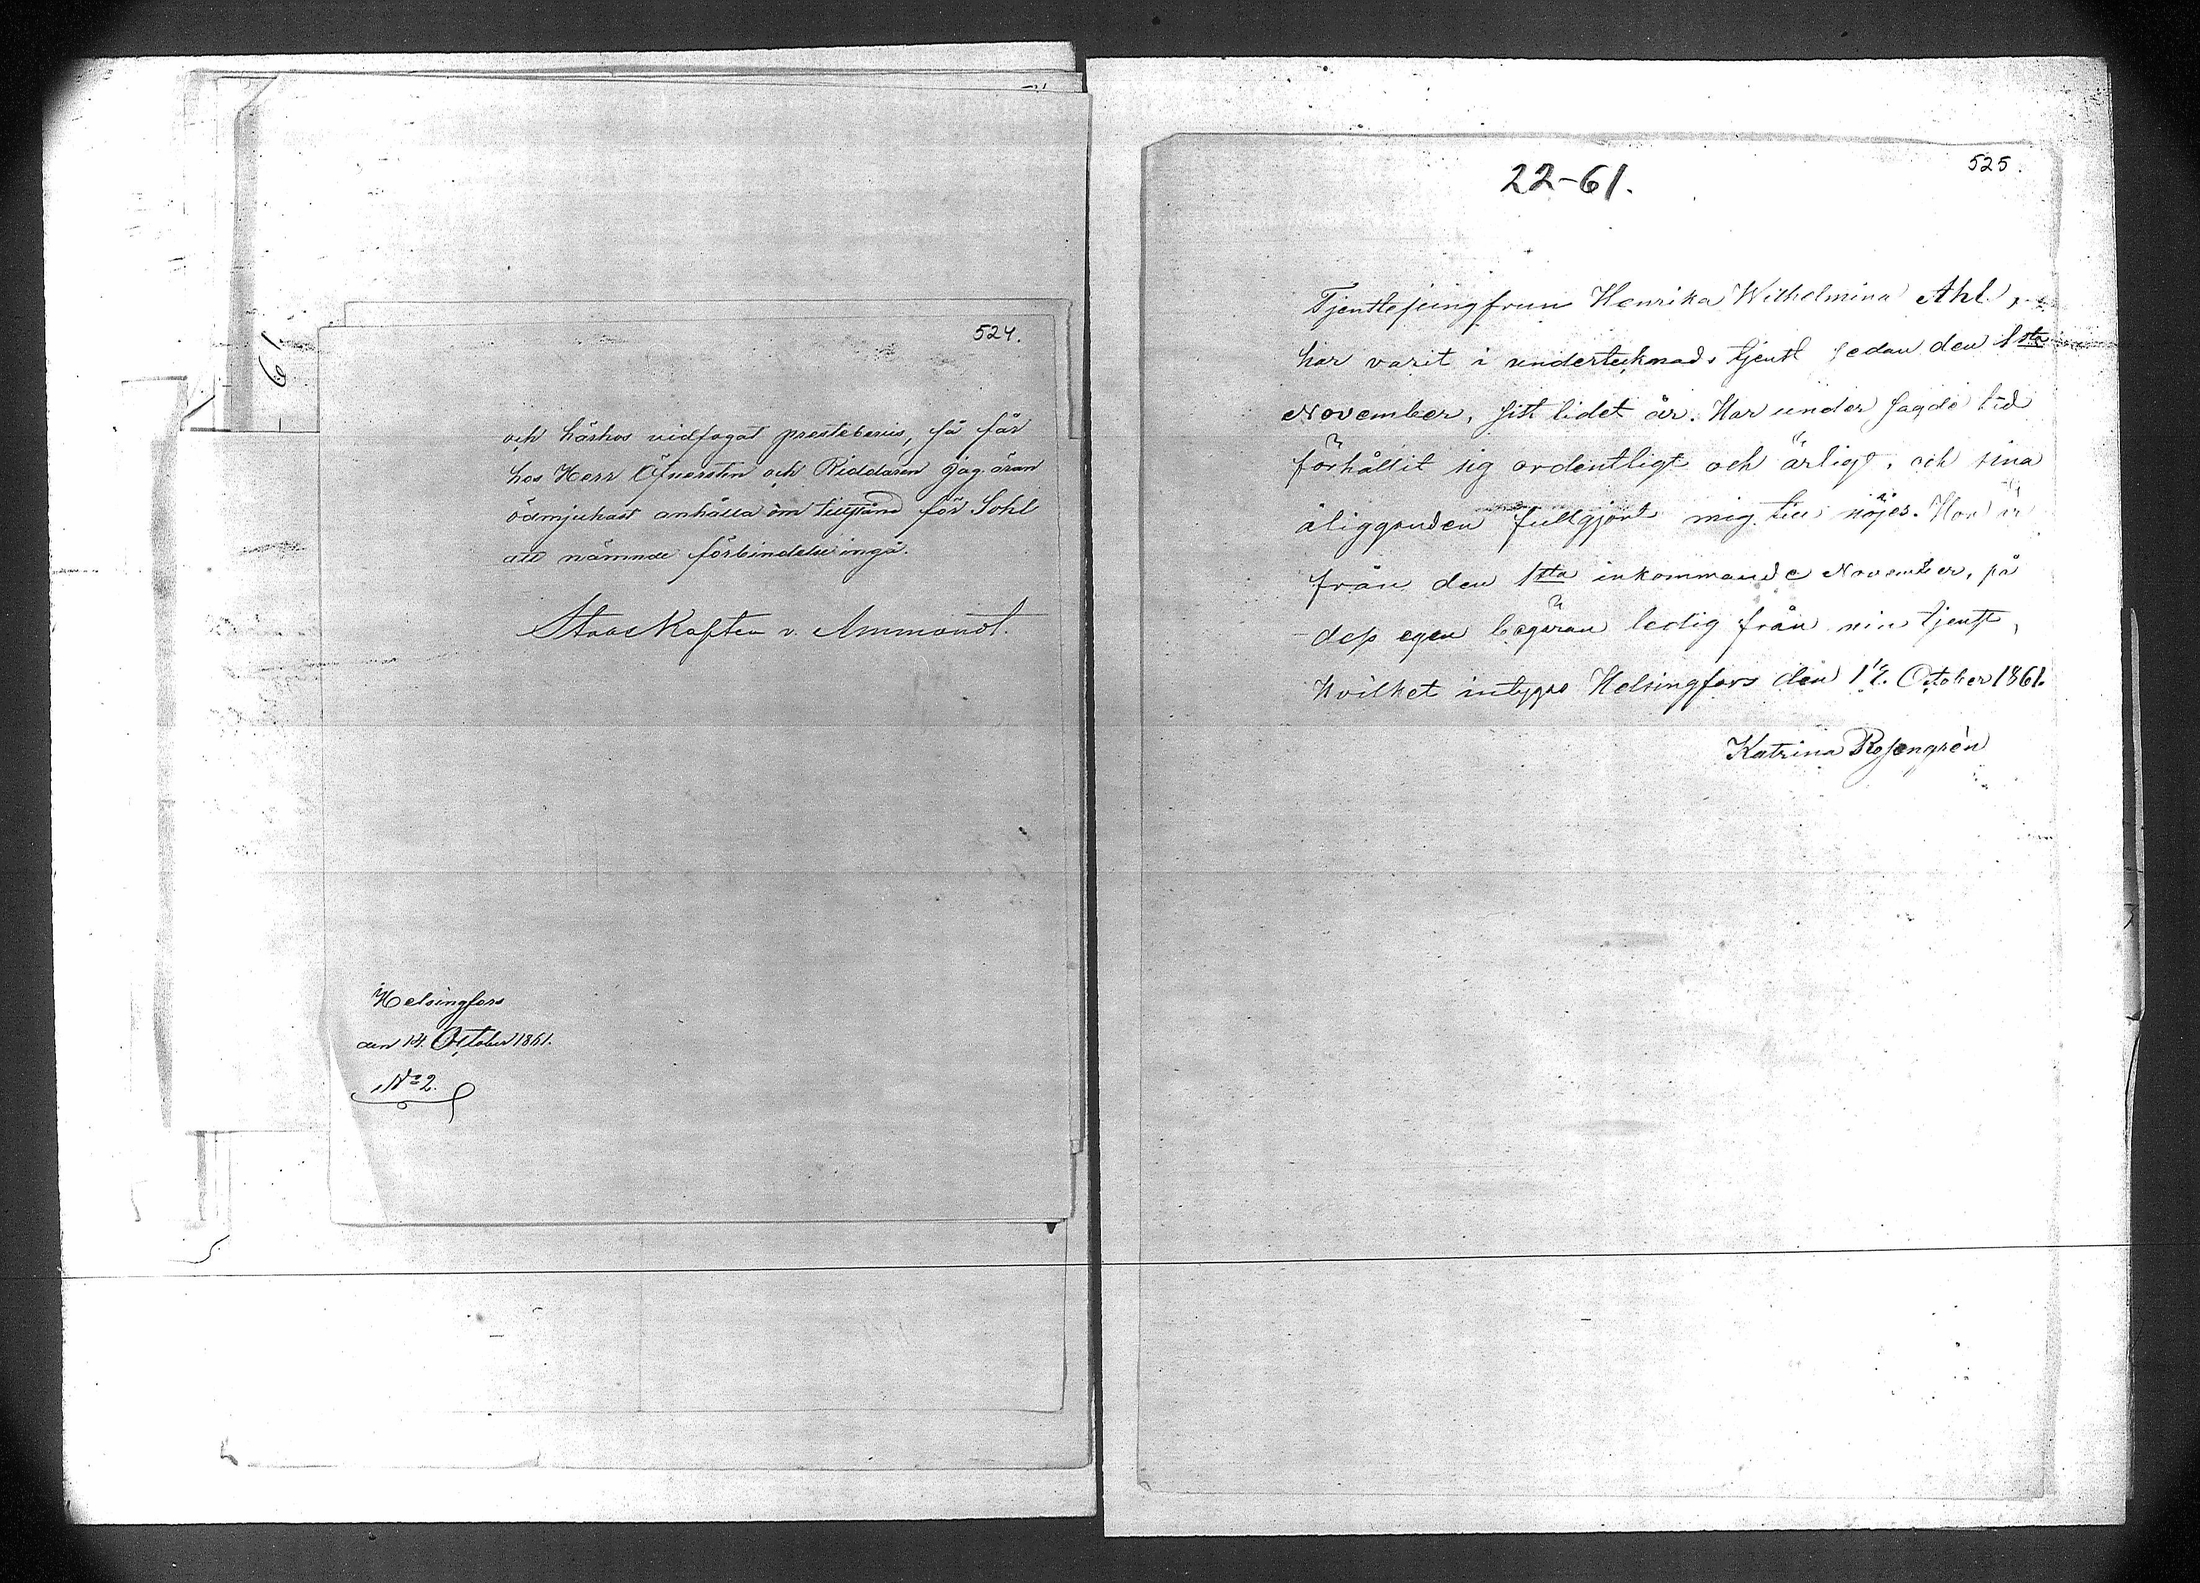 524.
61
och härhos vidfogat prestebevis, så får
hos Herr Öfversten och Riddaren jag äran
ödmjukast anhålla om tillstånd för Sohl
att nämnde förbindelse ingå.
StabsKapten v. Ammondt.
Helsingfors
den 14. October 1861.
No 2.
525.
22-61.
Tjenstejungfrun Henrika Wilhelmina Ahl,
har varit i undertecknads tjenst sedan den 1sta
November, sistlidet år. Har under sagde tid
förhållit sig ordentligt och ärligt, och sina
åligganden fullgjort mig till nöjes. Hon är
från den 1sta inkommande November, på
dess egen begäran ledig från min tjenst,
hvilket intygas Helsingfors den October 1861.
Katrina Rosengrèn